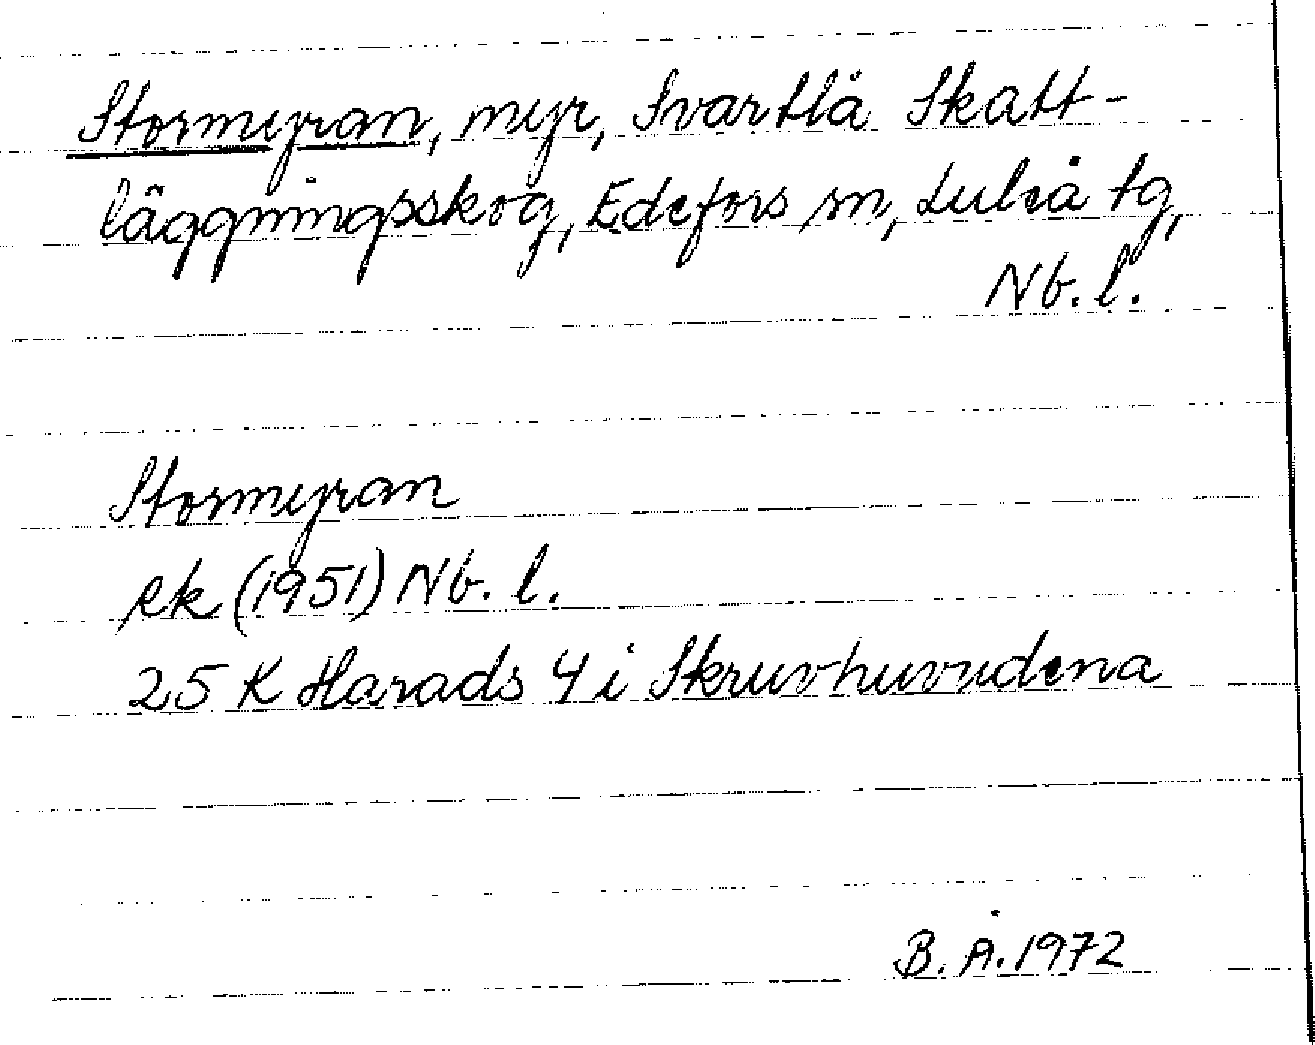 Stormyran, myr, Svartlå Skatt-
läggningsskog, Edefors sn, Luleå tg,
Nb. l.
Stormyran
ek (1951) Nb. l.
25 K Harads 4 i Skruvhuvudena
B. Å. 1972